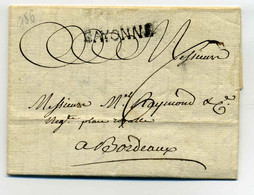 186
BAYONNE
Messieurs
Messieurs Raymond & Ce
Negts place royalle
a Bordeaux